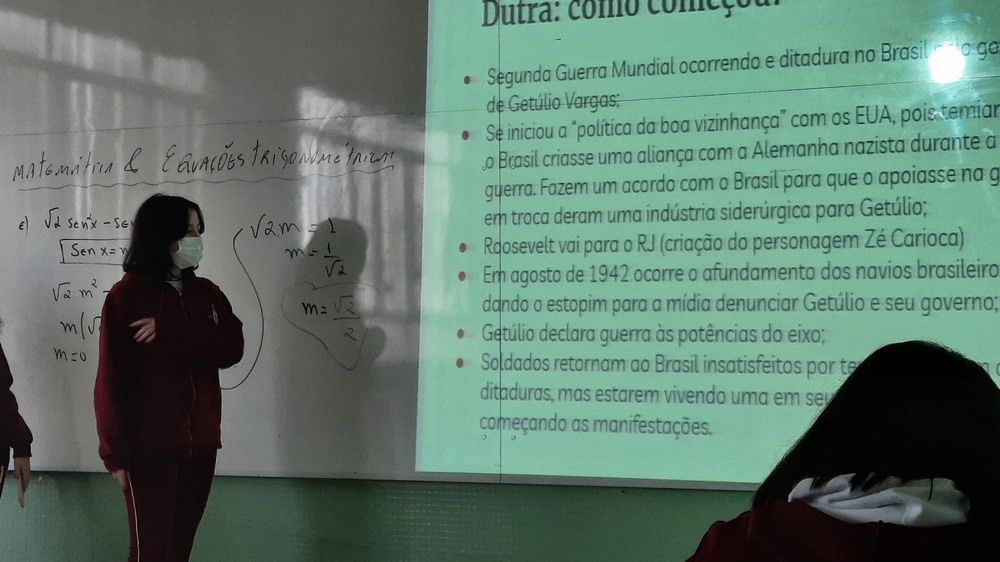 Dutra: como começou?
Segunda Guerra Mundial ocorrendo e ditadura no Brasil
de Getúlio Vargas;
Se iniciou a “política da boa vizinhança” com os EUA, pois temiam
o Brasil criasse uma aliança com a Alemanha nazista durante a
guerra. Fazem um acordo com o Brasil para que o apoiasse na g
em troca deram uma indústria siderúrgica para Getúlio;
Roosevelt vai para o RJ (criação do personagem Zé Carioca)
Em agosto de 1942 ocorre o afundamento dos navios brasileiro
dando o estopim para a mídia denunciar Getúlio e seu governo;
Getúlio declara guerra às potências do eixo;
Soldados retornam ao Brasil insatisfeitos por te
ditaduras, mas estarem vivendo uma em seu
começando as manifestações.
MATEMÁTICA & EQUAÇÕES TRIGONOMÉTRICAS
e) √2 sen²x - Sen
Sen x = m
√2 m² -
m(√
m=0
√2.m = 1
m = 1/√2
m = √2/2